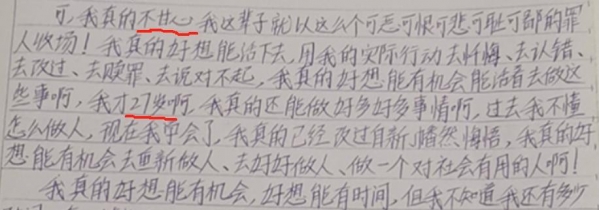 可，我真的不甘心我这辈子就以这么个可恶可恨可悲可耻可鄙的罪
人收场！我真的好想能活下去，用我的实际行动去忏悔、去认错、
去改过、去赎罪、去说对不起，我真的好想能有机会能活着去做这
些事啊，我才27岁啊，我真的还能做好多好多事情啊，过去我不懂
怎么做人，现在我学会了，我真的已经改过自新、幡然悔悟，我真的好
想能有机会去重新做人、去好好做人、做一个对社会有用的人啊！
我真的好想能有机会，好想能有时间，但我不知道我还有多少